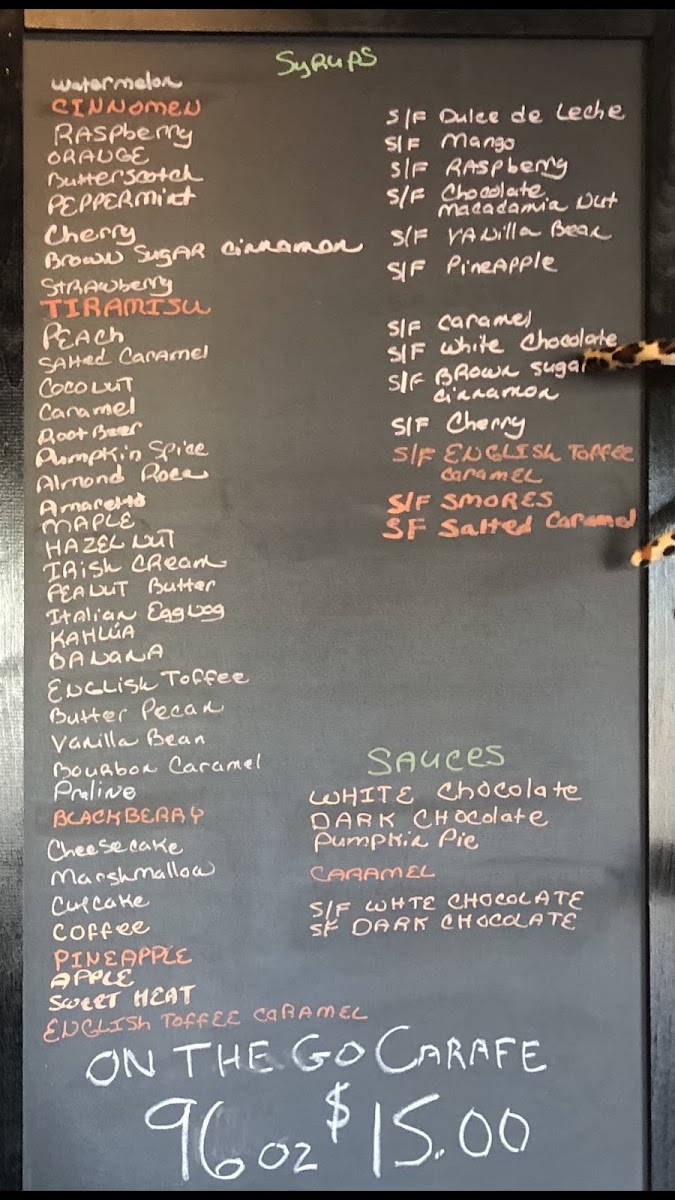 SYRUPS
watermelon
CINNOMEN
RASpberry
ORANGE
Butterscotch
PEPPERMINT
Cherry
BROWN SUGAR cinnamon
STRAWberry
TIRAMISU
PEACH
SALTED CARAMEL
COCONUT
Caramel
Root Beer
Pumpkin Spice
Almond Roca
Amaretto
MAPLE
HAZELNUT
IRISH CREAM
PEANUT Butter
Italian Eggnog
KAHLÚA
BANANA
ENGLISH Toffee
Butter Pecan
Vanilla Bean
Bourbon Caramel
Praline
BLACKBERRY
Cheesecake
Marshmallow
Cupcake
Coffee
PINEAPPLE
APPLE
SWEET HEAT
ENGLISH TOFFEE CARAMEL
S/F Dulce de Leche
S/F Mango
S/F RASpberry
S/F Chocolate
macadamia Nut
S/F VANilla Bean
S/F PineApple
S/F caramel
S/F white Chocolate
S/F BROWN sugar
cinnamon
S/F Cherry
S/F ENGLISH TOFFEE
CARAMEL
S/F SMORES
SF Salted Caramel
SAUCES
WHITE Chocolate
DARK CHocolate
Pumpkin Pie
CARAMEL
S/F WHTE CHOCOLATE
SF DARK CHOCOLATE
ON THE GO CARAFE
96 oz $15.00